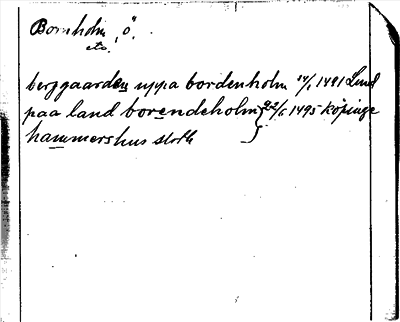 Bornholm, "ö".
etc.
berggaarden uppa bordenholm 14/1 1491 Lund
paa land borendeholm } 22/1 1495 köpinge
hammershus sloth